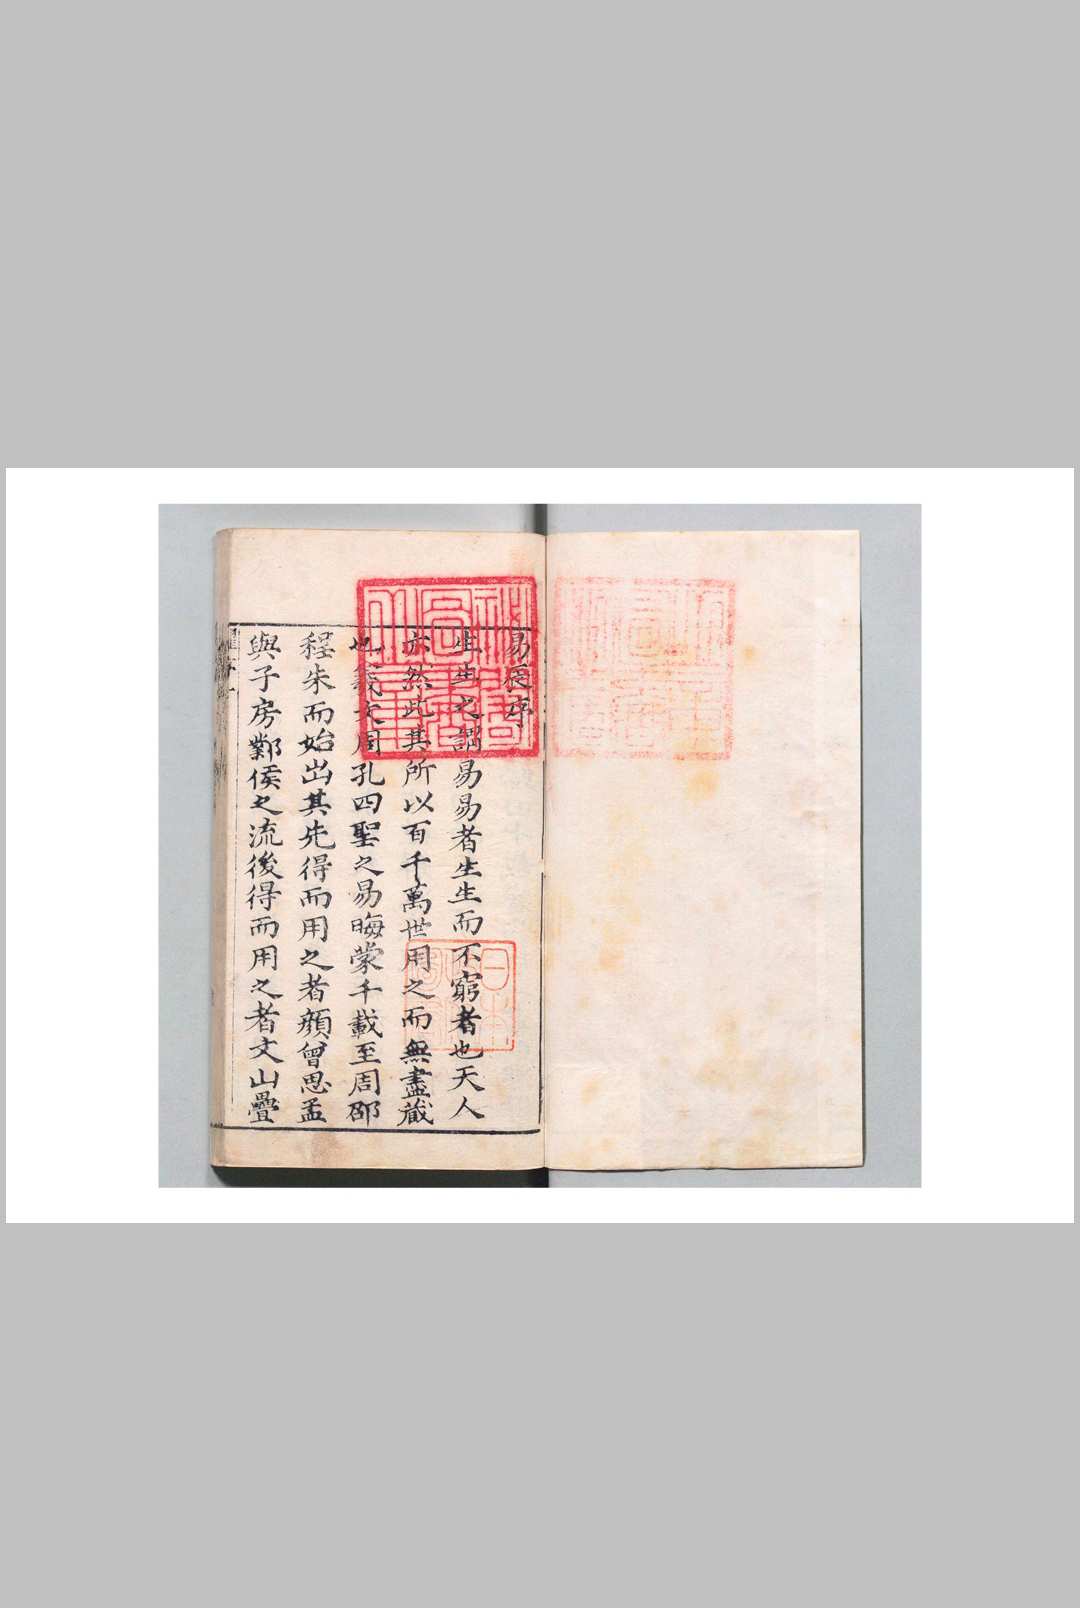 易疑序
生生之謂易易者生生而不窮者也天人
亦然此其所以百千萬世用之而無盡藏
也羲文周孔四聖之易晦蒙千載至周邵
程朱而始出其先得而用之者顏曾思孟
與子房鄴侯之流後得而用之者文山疊
日本